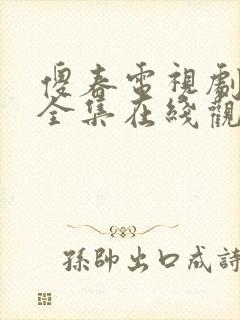 傻春電視劇
全集在綫觀
孫帥出口成詩